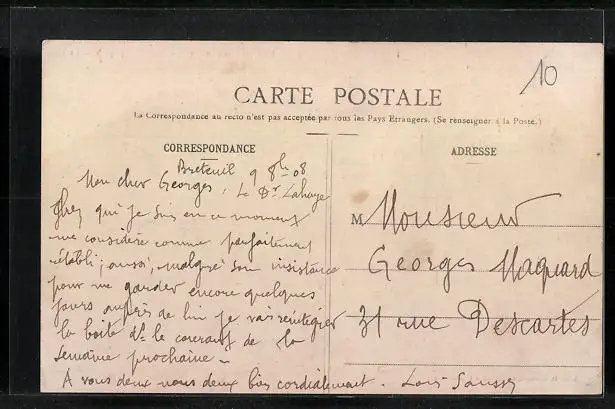 10
CARTE POSTALE
La Correspondance au recto n'est pas acceptée par tous les Pays Etrangers. (Se renseigner à la Poste.)
CORRESPONDANCE
ADRESSE
Breteuil 9 8bre 08
Mon cher Georges, Le Dr Lahaye
chez qui je suis en ce moment
me considère comme parfaitement
rétabli; aussi, malgré son insistance
pour me garder encore quelques
jours auprès de lui je vais réintégrer
la boite ds le courant de la
semaine prochaine –
A vous deux nous deux bien cordialement. Louis
M Monsieur
Georges Maquard
31 rue Descartes